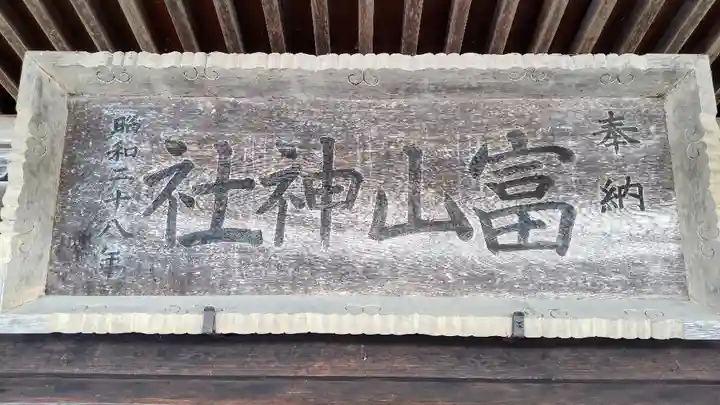 奉納
富山神社
昭和二十八年